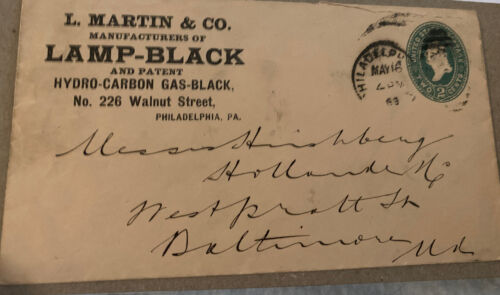 L. MARTIN & CO.
MANUFACTURERS OF
LAMP-BLACK
AND PATENT
HYDRO-CARBON GAS-BLACK,
No. 226 Walnut Street,
PHILADELPHIA, PA.
PHILADELPHIA
MAY 16
UNITED STATES
TWO 2 CENTS
Messrs Hirshberg
Hollander & Co
West Pratt St
Baltimore
Md